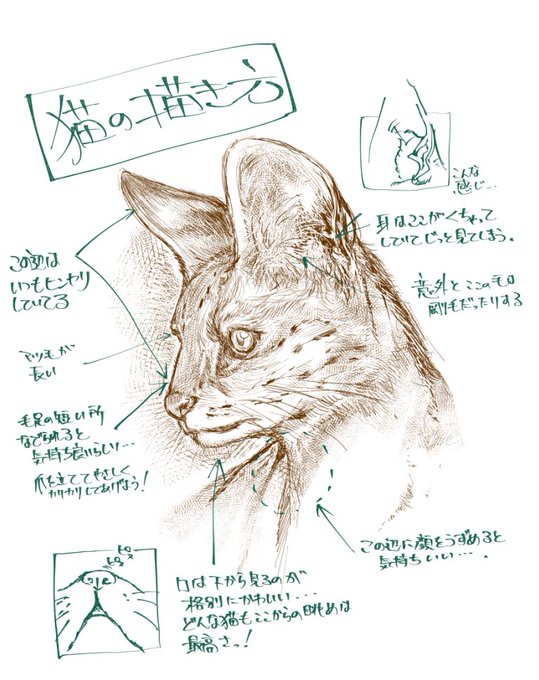 猫の描き方
こんな
感じ…
耳はここがくちゃって
していてじっと見てしまう。
意外とここの毛は
剛毛だったりする
この辺は
いつもヒンヤリ
している
マツ毛が
長い
毛足の短い所
なでられると
気持ち良いらしい…
爪を立ててやさしく
カリカリしてあげよう!
この辺に顔をうずめると
気持ちいい….
ピス
ピス
口は下から見るのが
格別にかわいい…
どんな猫もここからの眺めは
最高さっ!